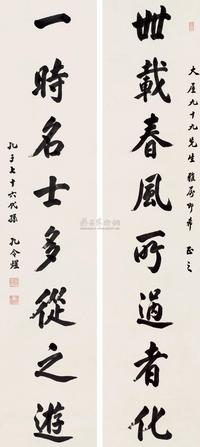 大屋九十九先生雅属即希正之
卅載春風所過者化
一時名士多從之遊
孔子七十六代孫孔令煜